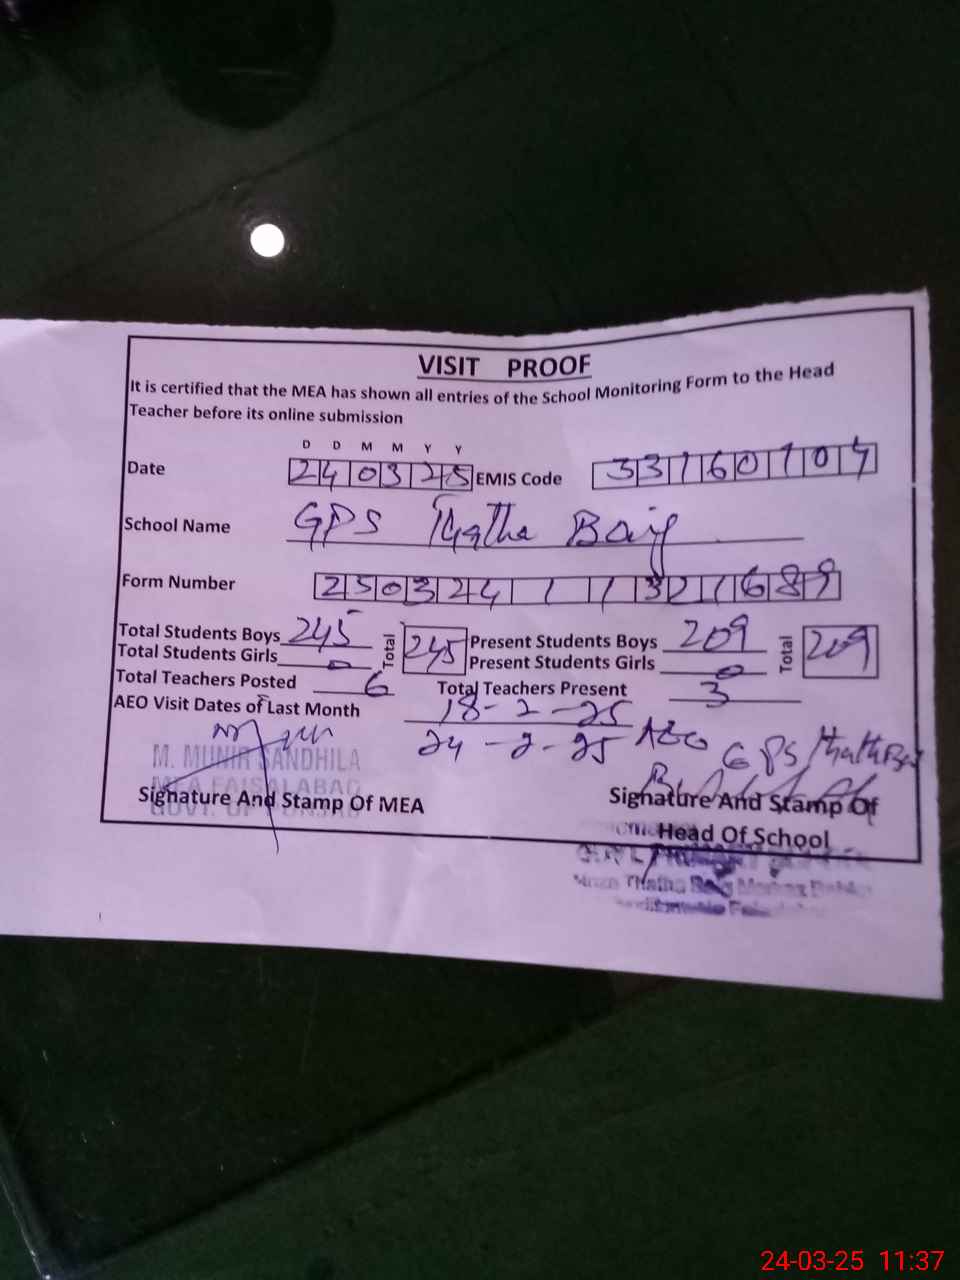 VISIT PROOF
It is certified that the MEA has shown all entries of the School Monitoring Form to the Head
Teacher before its online submission
D D M M Y Y
Date 240325 EMIS Code 33160104
School Name GPS Thatha Baig
Form Number 25032411321689
Total Students Boys 245 Total 245 Present Students Boys 209 Total 209
Total Students Girls 0 Present Students Girls 0
Total Teachers Posted 6 Total Teachers Present 3
AEO Visit Dates of Last Month 18-2-25
24-2-25 AEO GPS Thatha Baig
M. MUNIR SANDHILA
MEA FAISALABAD
GOVT. OF PUNJAB
Signature And Stamp Of MEA Signature And Stamp Of
Head Of School
Thatha Baig
24-03-25 11:37